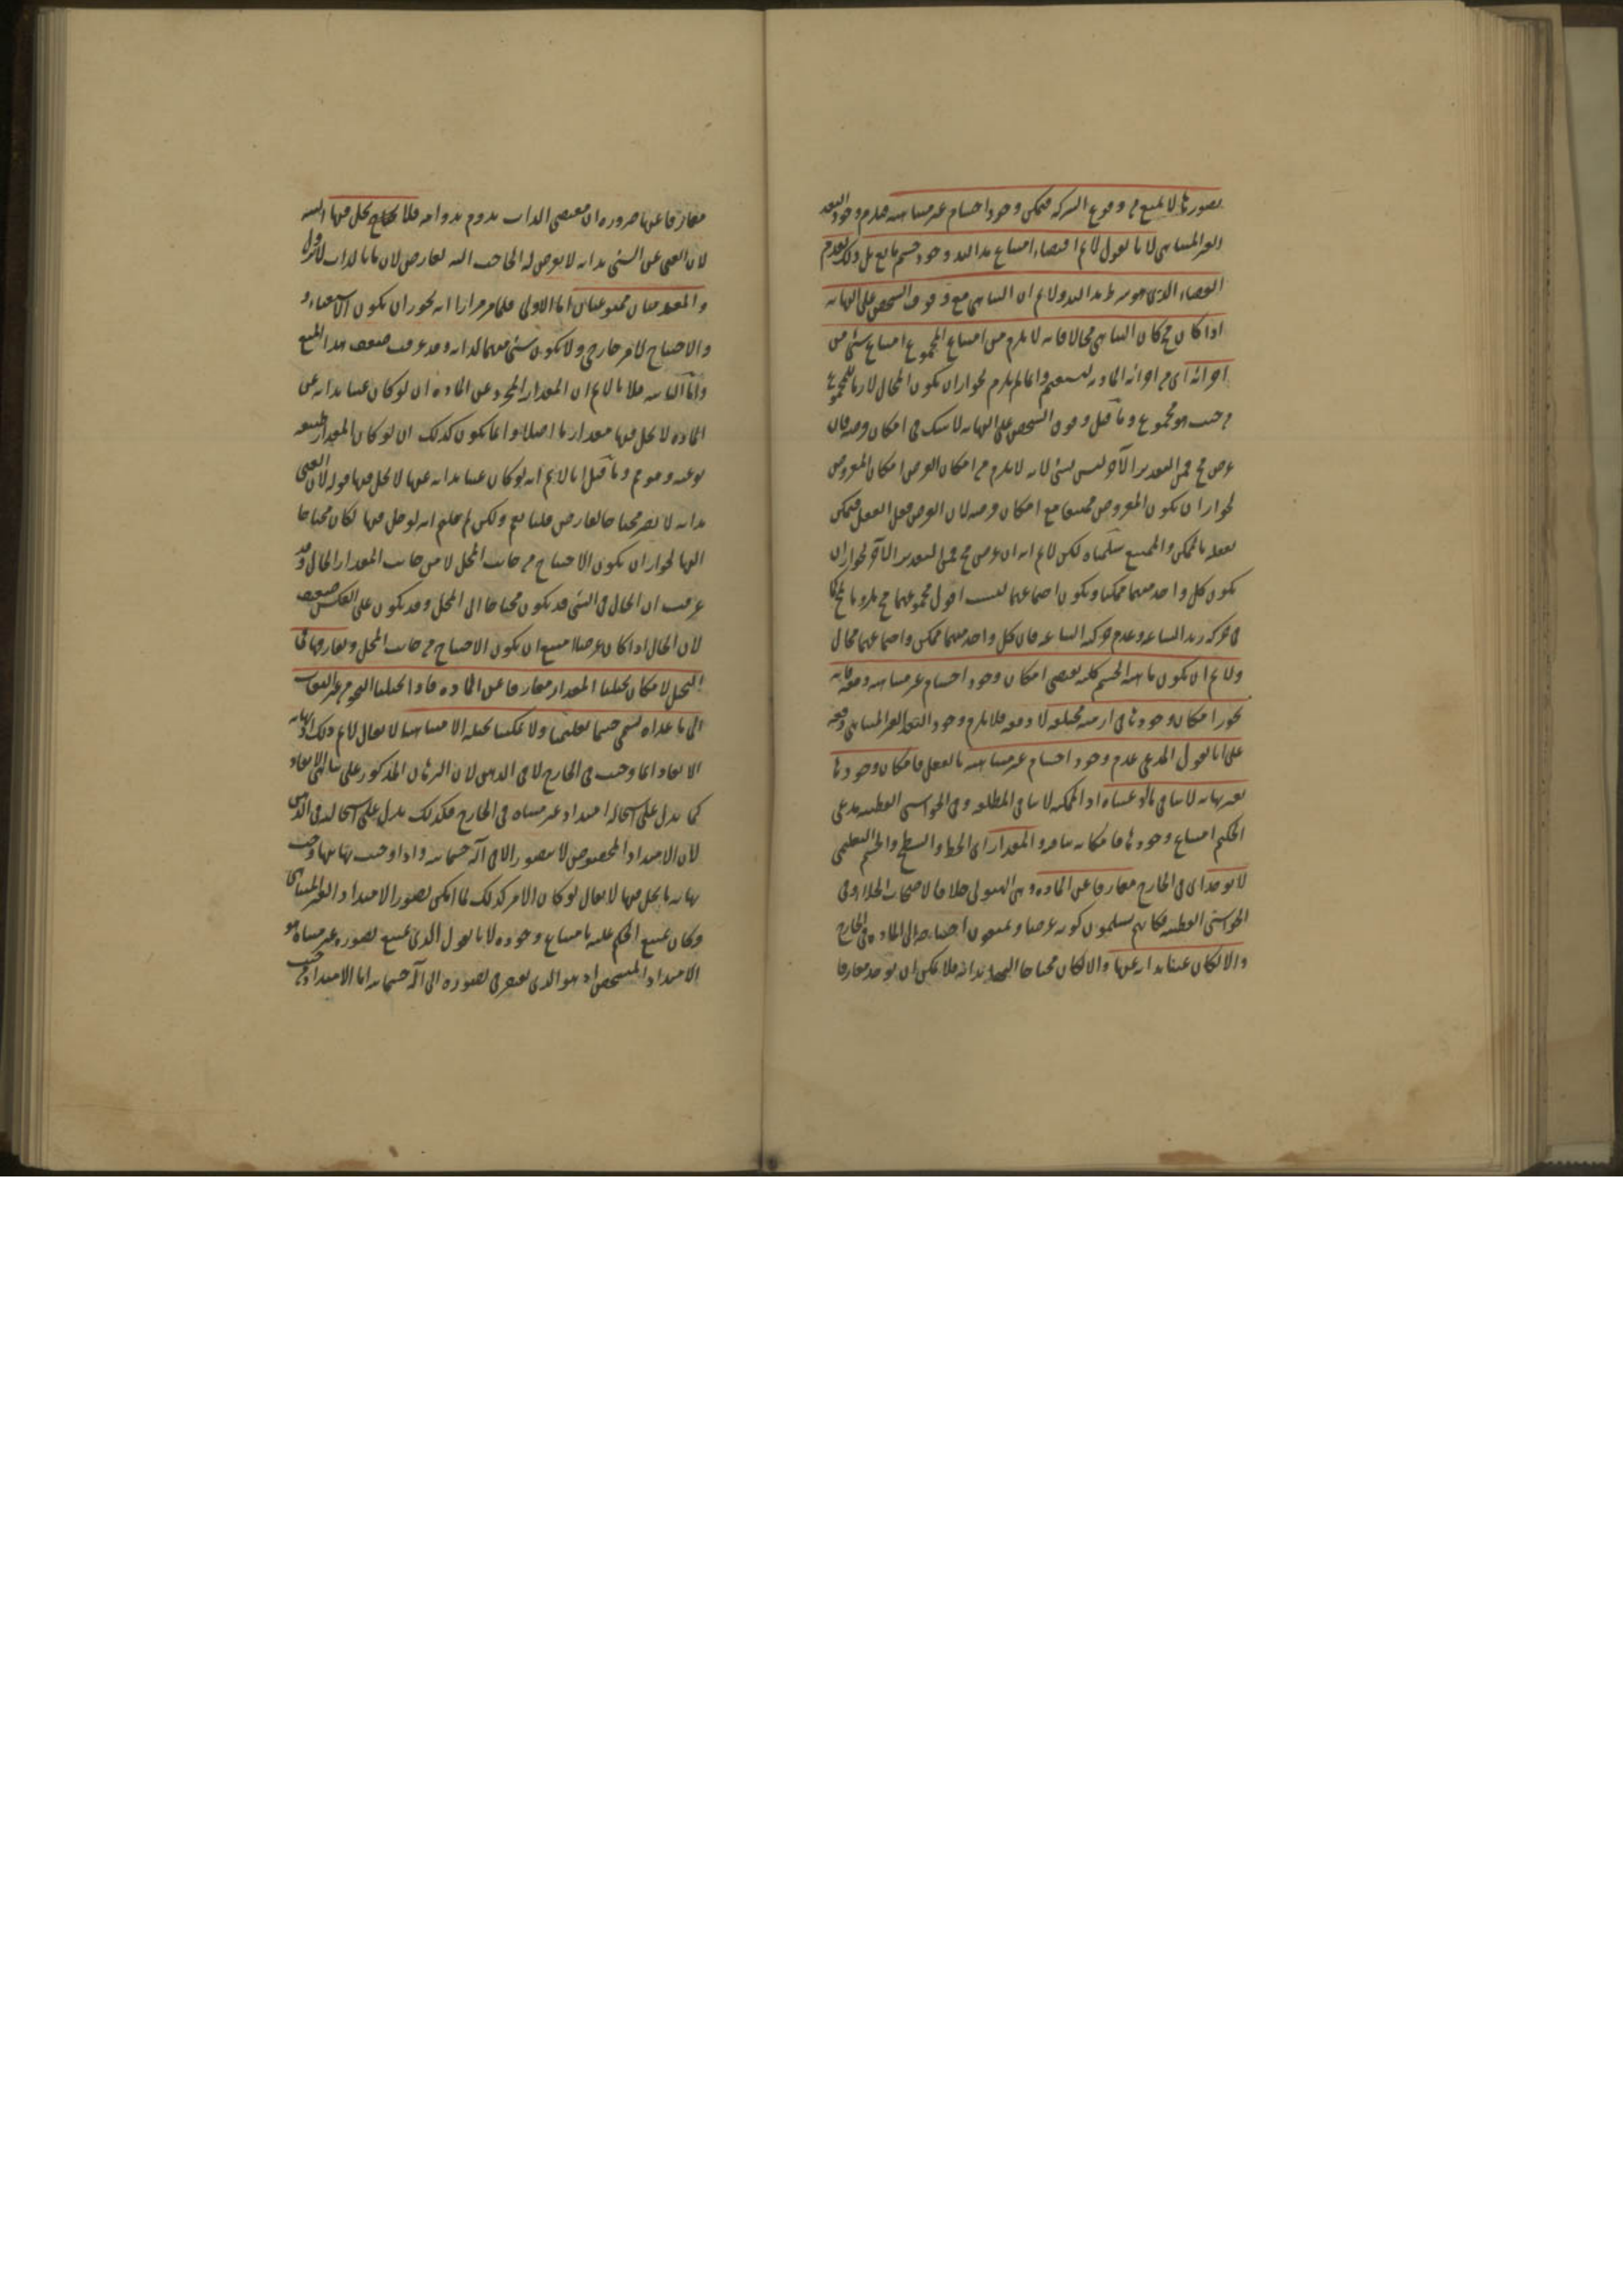 تصورها لا يمنع من وقوع الشركة فيمكن وجود اجسام غير متناهية فيلزم وجود البعد
الغير المتناهي لانا نقول لا نم اقتضاء امتناع هذا البعد وجود جسم مانع بل ذلك لعدم
الفضاء الذي هو شرط هذا البعد ولا نم ان التناهي مع وقوف الشخص على النهاية
اذا كان مح كان التناهي محالا فانه لا يلزم من امتناع المجموع امتناع شئ من
اجزائه اي من اجزائه المادية ليستقيم وانما لم يلزم لجواز ان يكون المحال لازما للمجموع
من حيث هو مجموع وما قيل وقوف الشخص على النهاية لا شك في امكان فرضه فان
فرض مح فمن التقدير الآخر ليس بشئ لانه لا يلزم من امكان الفرض امكان المفروض
لجواز ان يكون المفروض ممتنعا مع امكان فرضه لان الفرض فعل العقل فيمكن
تعقله بالممكن والممتنع سلمناه لكن لا نم انه ان فرض مح فمن التقدير الآخر لجواز ان
يكون كل واحد منهما ممكنا ويكون اجتماعهما اقول مجموعهما مح
في حركة زيد الساعة وعدم حركته الساعة فان كل واحد منهما ممكن واجتماعهما محال
ولا نم ان يكون ماهية الجسم كلية يقتضي امكان وجود اجسام غير متناهية دفعة فانه
يجوز امكان وجودها في ازمنة مختلفة لا دفعة فلا يلزم وجود البعد الغير المتناهي دفعة
على انا نقول المدعى عدم وجود اجسام غير متناهية بالفعل فامكان وجودها
بغير نهاية لا ينافي ما ادعيناه اذ الممكنة لا ينافي المطلقة وفي الحواشي القطبية مدعى
الحكيم امتناع وجودها فامكانه ينافيه والمقدار اي الخط والسطح والجسم التعليمي
لا يوجد اي في الخارج مفارقا عن المادة وهي الهيولى خلافا لاصحاب الخلاء وفي
الحواشي القطبية فكانهم يسلمون كونه عرضا ويمنعون احتياجه الى المادة في الخارج
والا لكان غنيا بذاته عنها والا لكان محتاجا اليها بذاته فلا يمكن ان يوجد مفارقا
مفارقا عنها ضرورة ان مقتضى الذات يدوم بدوامه فلا يحل فيها البتة
لان الغني عن الشئ بذاته لا يعرض له الحاجة اليه لعارض لان ما بالذات لا يزول
والمقدمتان ممنوعتان اما الاولى فلما مر مرارا انه يجوز ان يكون الاستغناء و
والاحتياج لامر خارجي ولا يكون شئ منهما لذاته وقد عرفت ضعف هذا المنع
واما الثانية فلانا لا نم ان المقدار المجرد عن المادة ان لو كان غنيا بذاته عن
المادة لا يحل فيها مقدار ما اصلا وانما يكون كذلك ان لو كان المقدار طبيعة
نوعية وهو مم وما قيل انا لا نم انه لو كان غنيا بذاته عنها لا يحل فيها قوله لان الغني
بذاته لا يصير محتاجا لعارض قلنا نعم ولكن لم قلتم انه لو حل فيها لكان محتاجا
اليها لجواز ان يكون الاحتياج من جانب المحل لا من جانب المقدار الحال وقد
عرفت ان الحال في الشئ قد يكون محتاجا الى المحل وقد يكون على العكس ضعيف
لان الحال اذا كان عرضا امتنع ان يكون الاحتياج من جانب المحل ويفارقها في
التخيل لامكان تخيلنا المقدار مفارقا عن المادة فاذا تخيلنا الثخن من غير التفات
الى ما عداه يسمى جسما تعليميا ولا يمكننا تخيله الا متناهيا لا يقال لا نم ذلك اذ نهاية
الابعاد انما وجبت في الخارج لا في الذهن لان البرهان المذكور على تناهي الابعاد
كما يدل على استحالة امتداد غير متناه في الخارج فكذلك يدل على استحالته في الذهن
لان الامتداد المخصوص لا يتصور الا في آلة جسمانية واذا وجب نهايتها وجب
نهاية ما يحل فيها لا يقال لو كان الامر كذلك لما امكن تصور الامتداد الغير المتناهي
وكان يمتنع الحكم عليه بامتناع وجوده لانا نقول الذي يمتنع تصوره غير متناه هو
الامتداد المشخص اذ هو الذي يفتقر في تصوره الى آلة جسمانية اما الامتداد من حيث